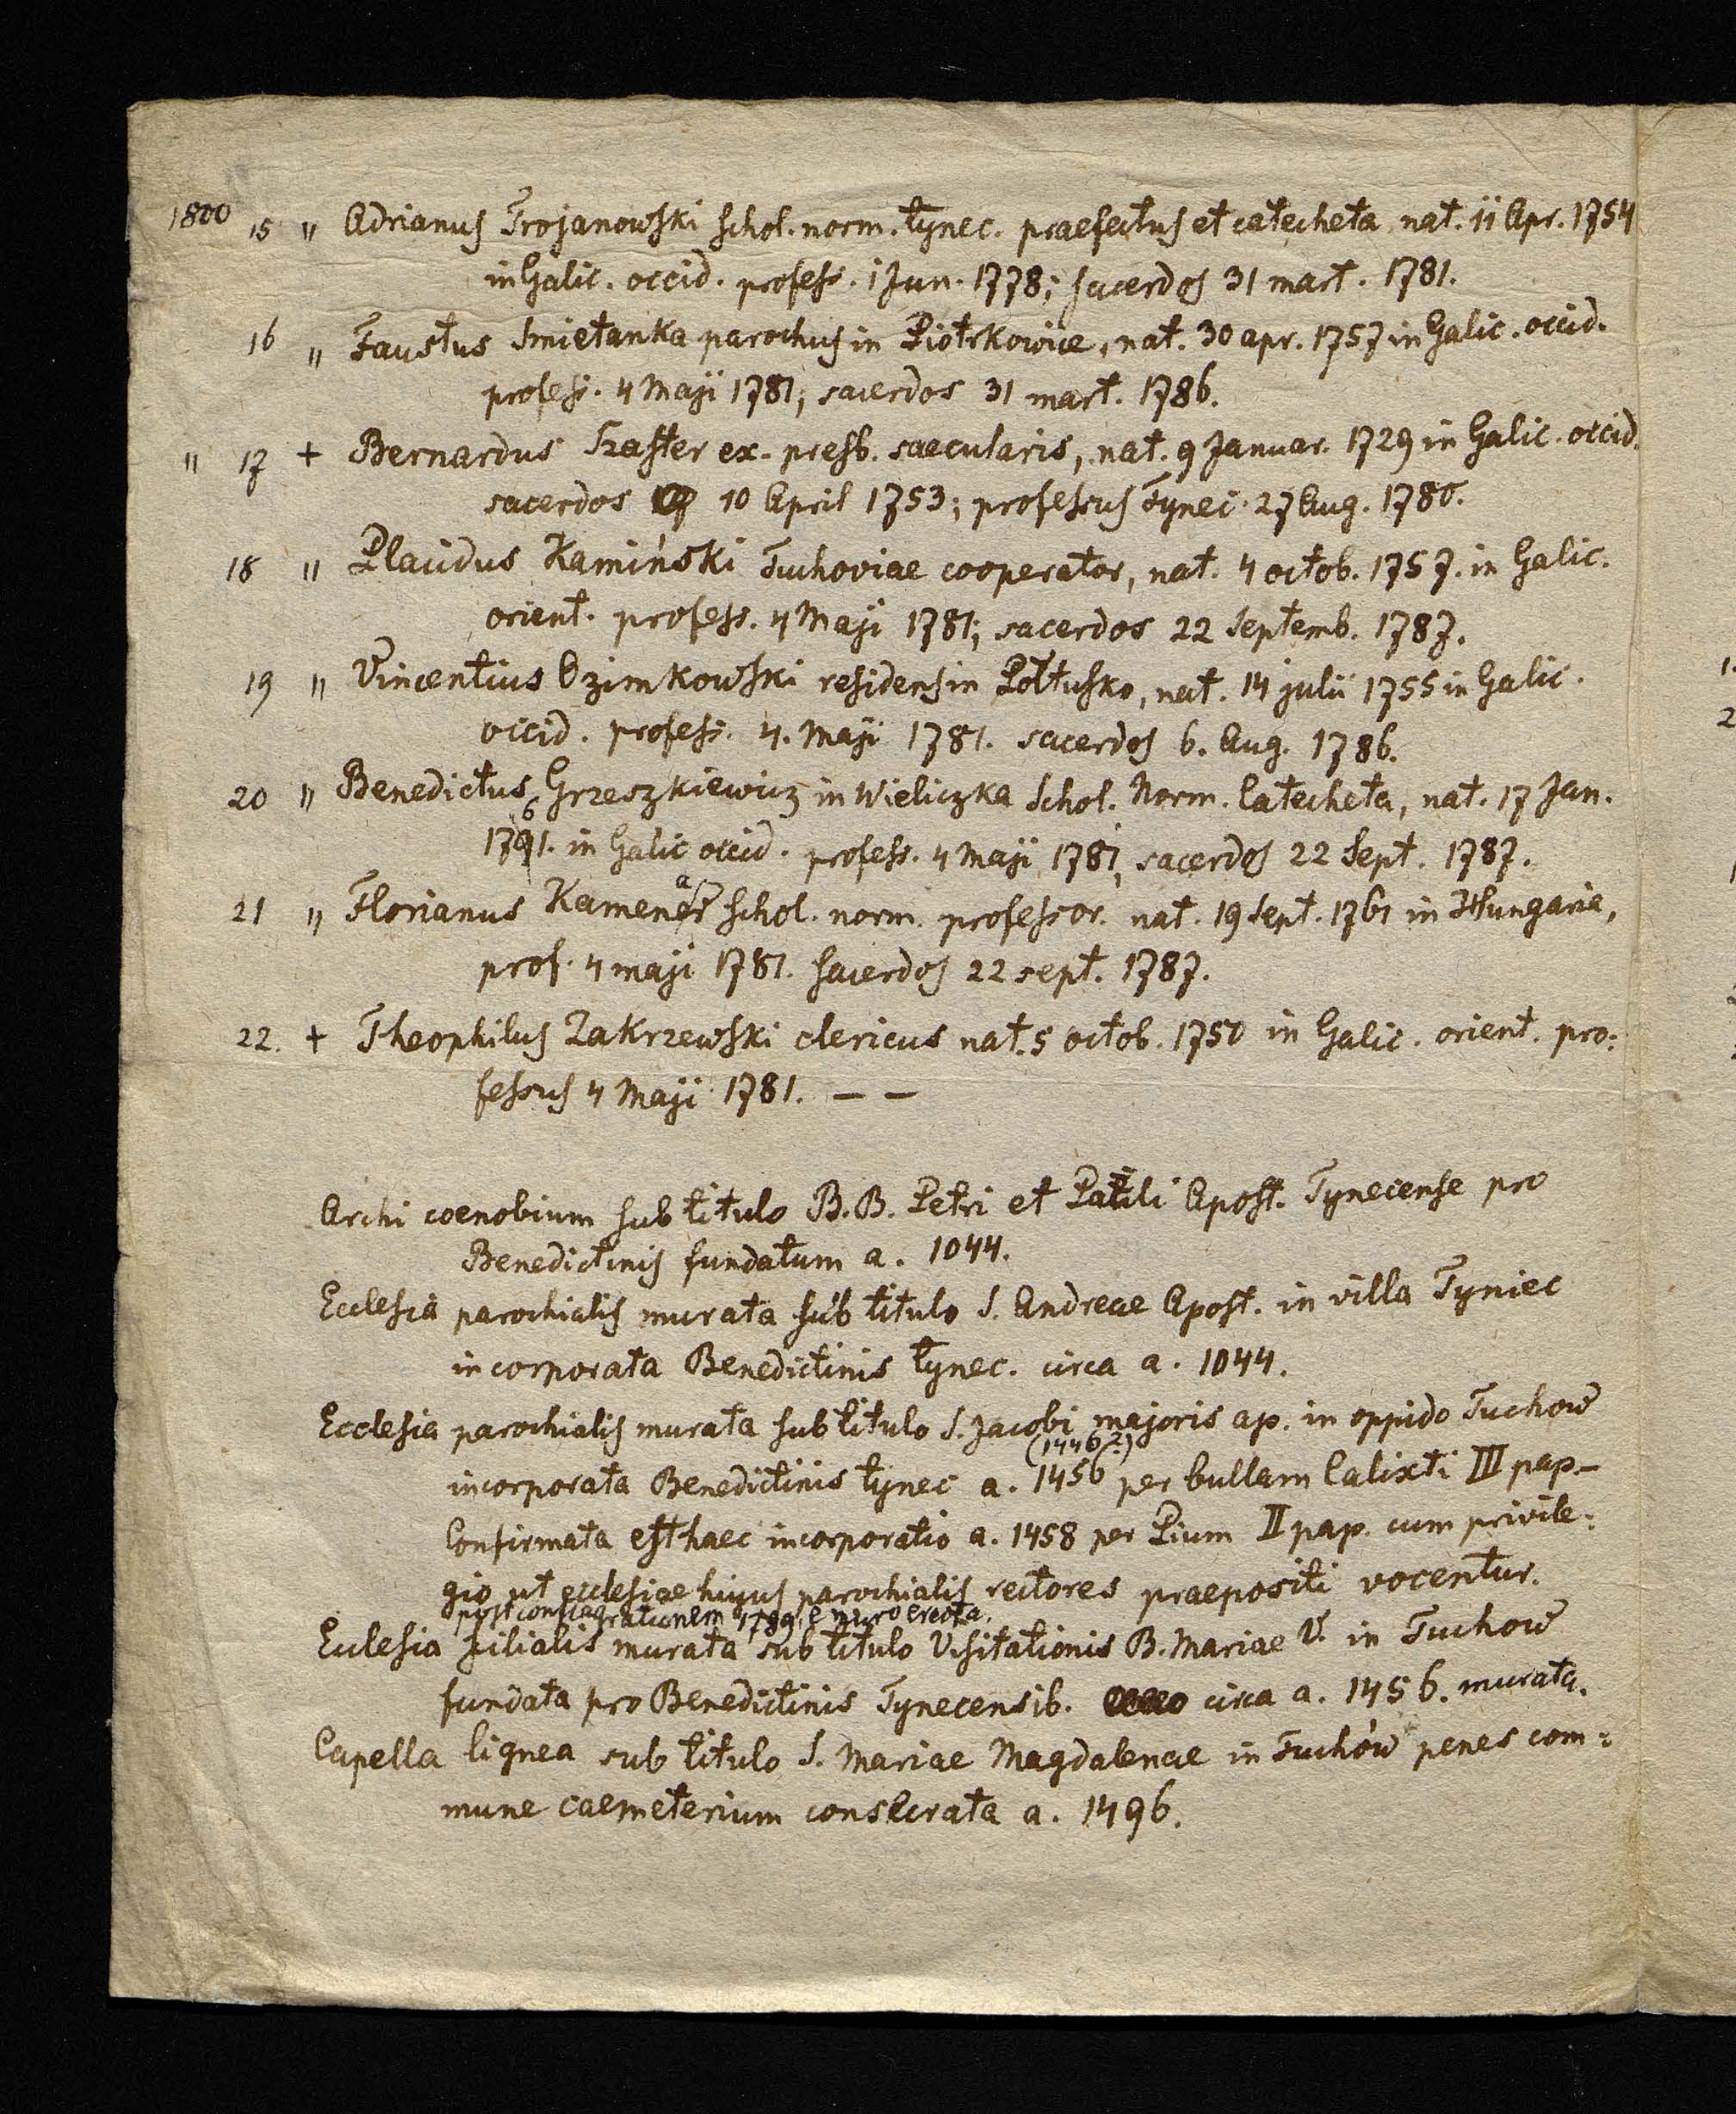 1800 15 " Adrianus Trojanowski schol. norm. tynec. praefectus et catecheta nat. 11 Apr. 1754
in Galic. occid. profess. 1 Jun. 1778; sacerdos 31 mart. 1781.
16 " Faustus Smietanka parochus in Piotrkowice, nat. 30 apr. 1757 in Galic. occid.
profess. 4 Maji 1781; sacerdos 31 mart. 1786.
" 17 + Bernardus Szaster ex. presb. saecularis, nat. 9 Januar. 1729 in Galic. occid.
sacerdos 10 April 1753; professus Tynec 27 Aug. 1780.
18 " Placidus Kamiński Tuchoviae cooperator, nat. 4 octob. 1757. in Galic.
orient. profess. 4 Maji 1781; sacerdos 22 Septemb. 1787.
19 " Vincentius Ozimkowski residens in Półtusko, nat. 14 julii 1755 in Galic.
occid. profess. 4. Maji 1781. sacerdos 6. Aug. 1786.
20 " Benedictus Grzeszkiewicz in Wieliczka Schol. Norm. Catecheta, nat. 17 Jan.
1761. in Galic occid. profess. 4 Maji 1781, sacerdos 22 Sept. 1787.
21 " Florianus Kamenar schol. norm. professor. nat. 19 Sept. 1761 in Hungaria,
prof. 4 maji 1781. Sacerdos 22 sept. 1787.
22. + Theophilus Zakrzewski clericus nat. 5 octob. 1750 in Galic. orient. pro:
fessus 4 Maji 1781. — —
Archi coenobium sub titulo B.B. Petri et Pauli Apost. Tynecense pro
Benedictinis fundatum a. 1044.
Ecclesia parochialis murata sub titulo S. Andreae Apost. in villa Tyniec
incorporata Benedictinis tynec. circa a. 1044.
Ecclesia parochialis murata sub titulo S. Jacobi majoris ap. in oppido Tuchow
(1446?)
incorporata Benedictinis tynec a. 1456 per bullam Calixti III pap.–
Confirmata est haec incorporatio a. 1458 per Pium II pap. cum privile:
gio ut ecclesiae hujus parochialis rectores praepositi vocentur.
post conflagrationem 1789 e muro erecta.
Eclesia filialis murata sub titulo Visitationis B. Mariae V. in Tuchow
fundata pro Benedictinis Tynecensib. circa a. 1456. murata.
Capella lignea sub titulo S. Mariae Magdalenae in Tuchów penes com:
mune caemeterium consecrata a. 1496.